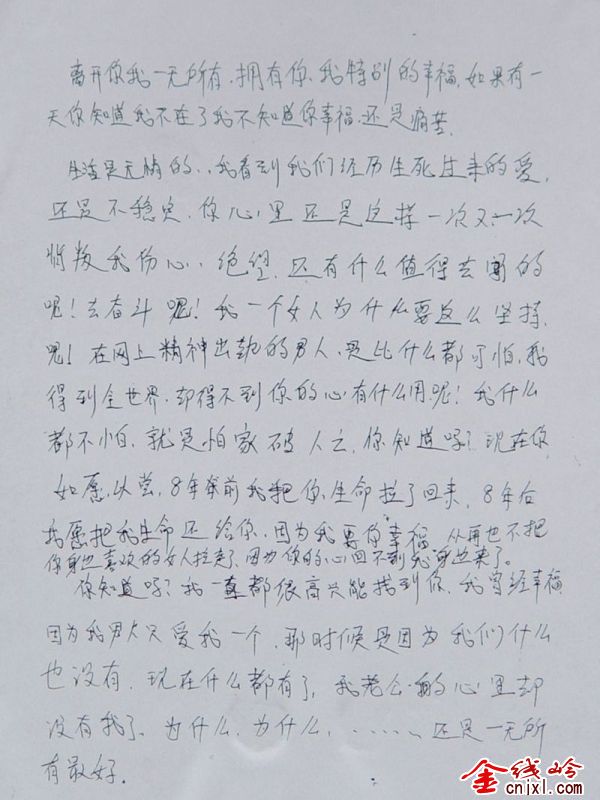 离开你我一无所有.拥有你.我特别的幸福.如果有一
天你知道我不在了我不知道你幸福.还是痛苦.
生活是无情的..我看到我们经历生死过来的爱,
还是不稳定.你心里还是这样一次又.一次
背叛我伤心.绝望.还有什么值得去闯的
呢!去奋斗呢!我一个女人为什么要这么坚持.
呢!在网上精神出轨的男人.是比什么都可怕.我
得到全世界.却得不到你的心有什么用呢!我什么
都不怕.就是怕家破人亡.你知道吗?现在你
如愿以尝.8年前我把你生命拉了回来.8年后
我愿把我生命还给你.因为我要你幸福.从再也不把
你身边喜欢的女人拉走了.因为你的心回不到我身边来了。
你知道吗?我一直都很高兴能找到你.我曾经幸福
因为我男人只爱我一个.那时候是因为我们什么
也没有.现在什么都有了.我老公的心里却
没有我了.为什么.为什么.......还是一无所
有最好.
金线岭
cnjxl.com